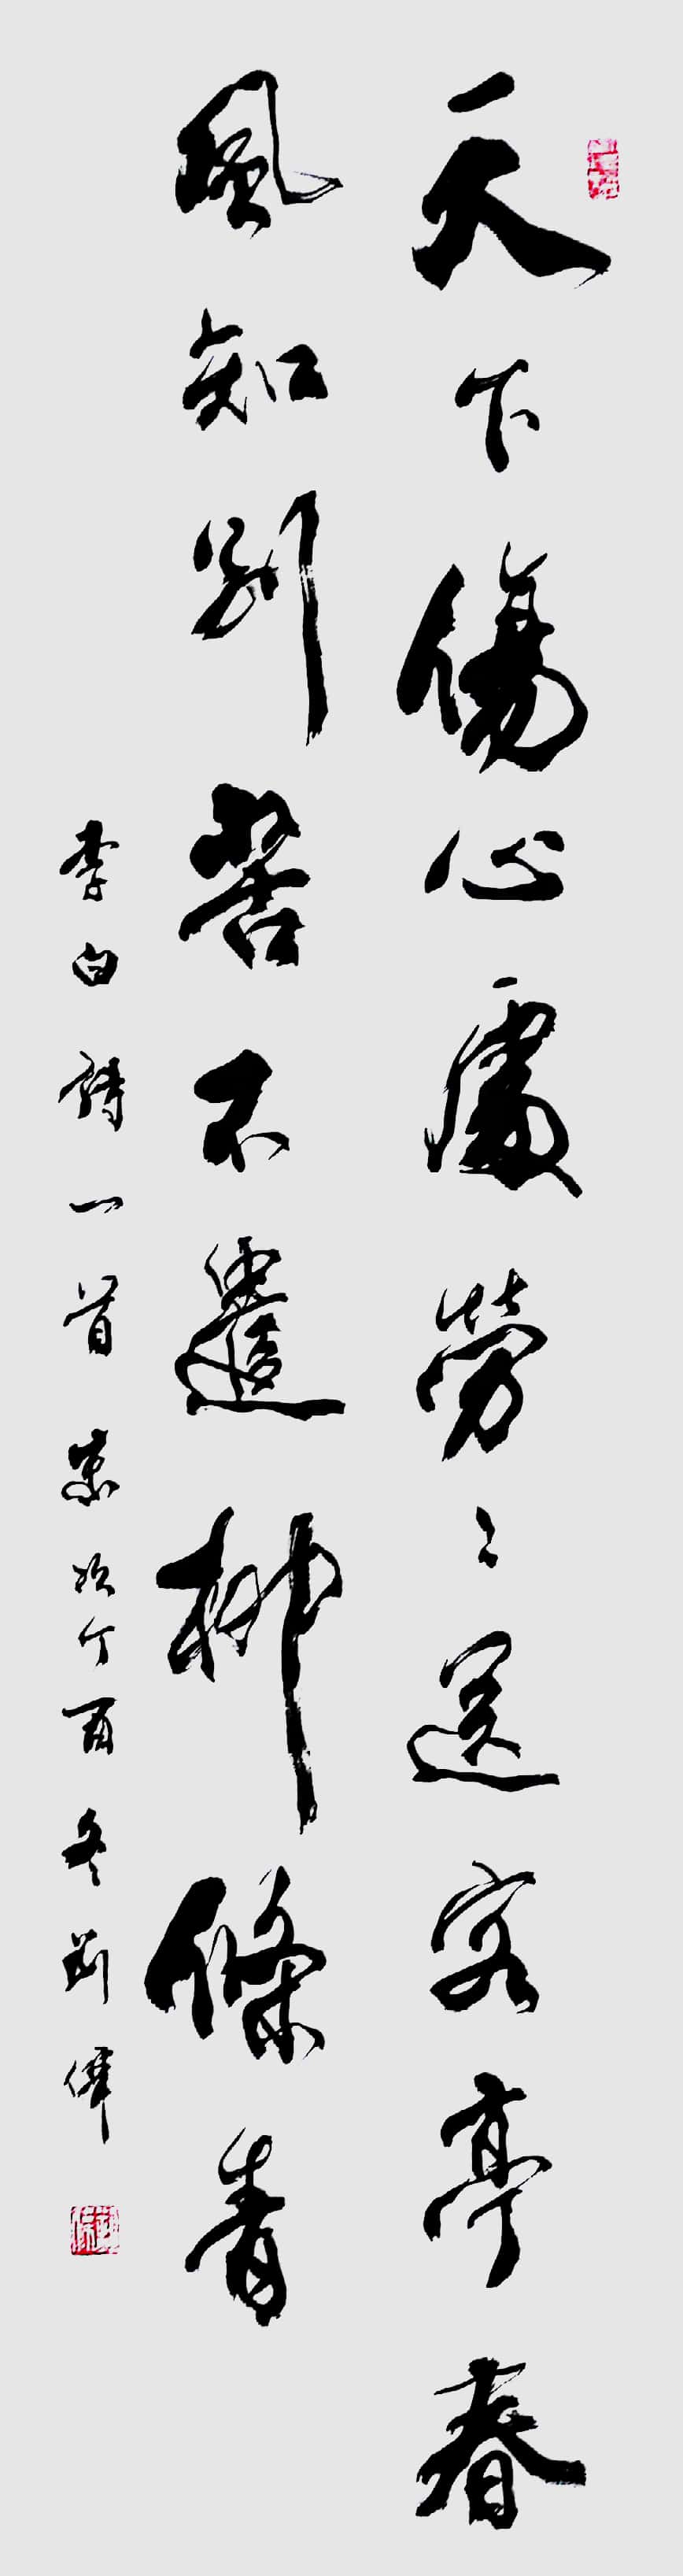 天下傷心處勞〻送客亭春
風知別苦不遣柳條青
李白詩一首 歲次丁酉冬 劉偉